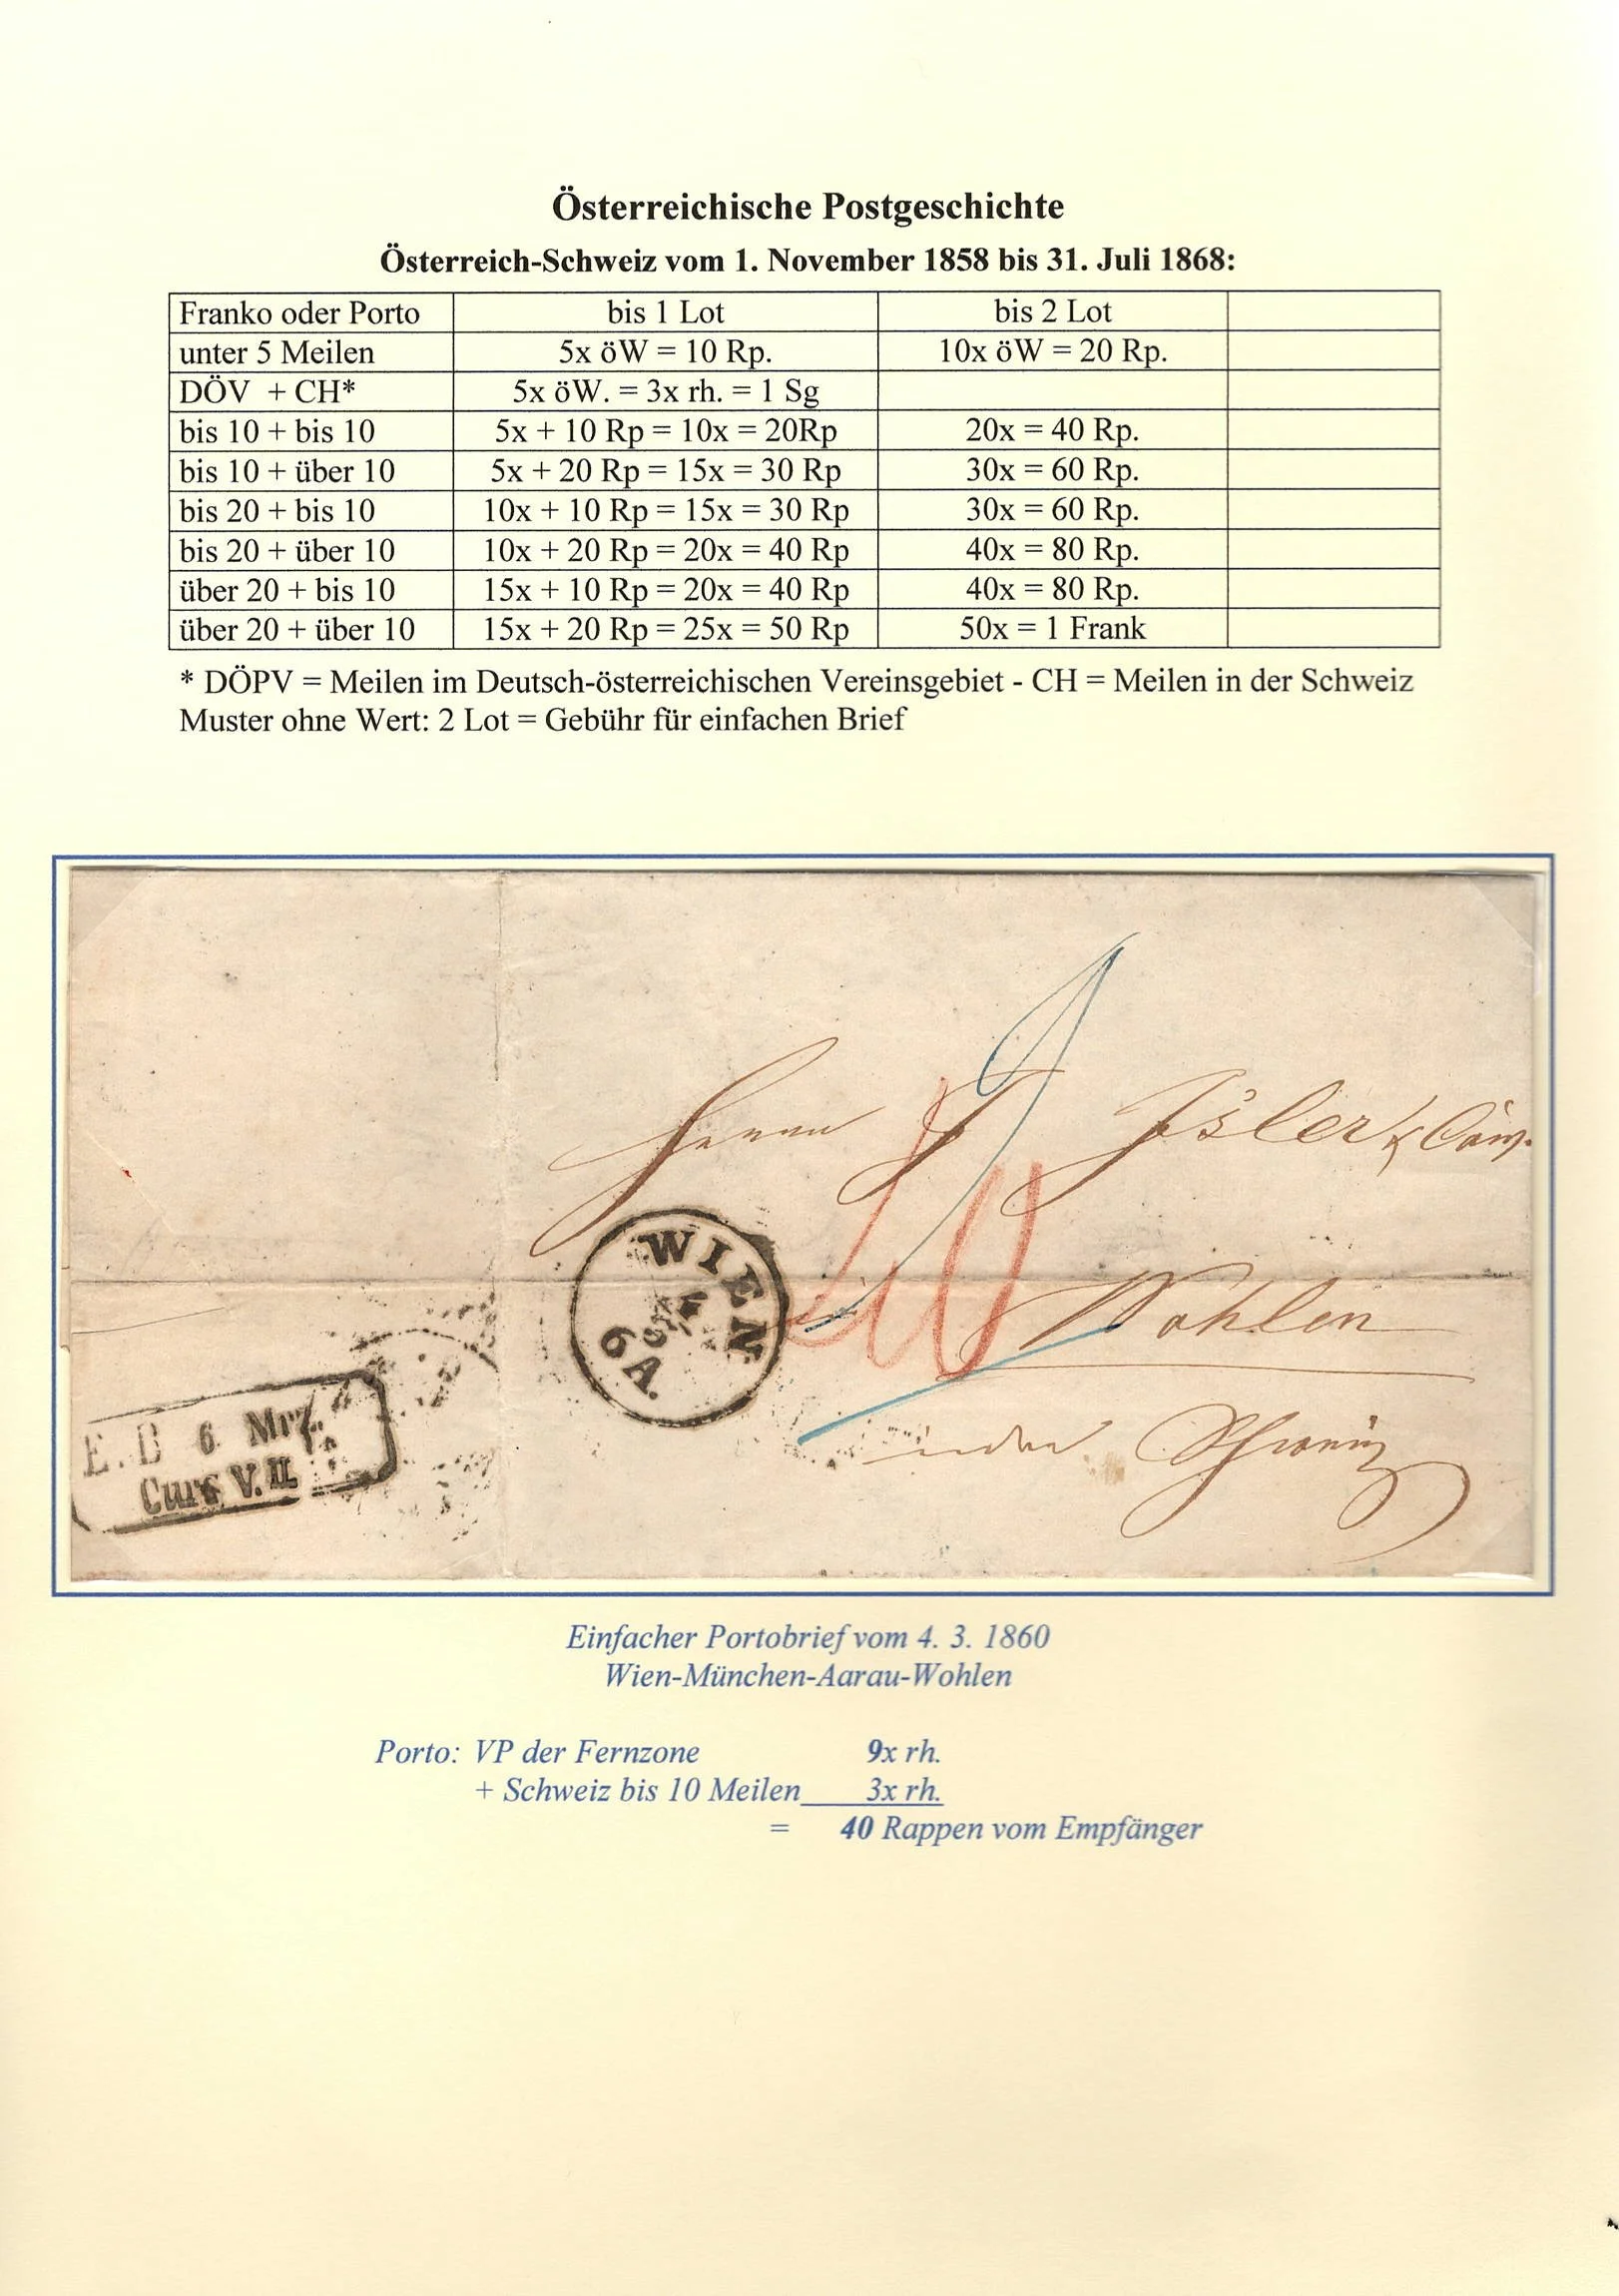 Österreichische Postgeschichte
Österreich-Schweiz vom 1. November 1858 bis 31. Juli 1868:
Franko oder Porto bis 1 Lot bis 2 Lot
unter 5 Meilen 5x öW = 10 Rp. 10x öW = 20 Rp.
DÖV + CH* 5x öW. = 3x rh. = 1 Sg
bis 10 + bis 10 5x + 10 Rp = 10x = 20Rp 20x = 40 Rp.
bis 10 + über 10 5x + 20 Rp = 15x = 30 Rp 30x = 60 Rp.
bis 20 + bis 10 10x + 10 Rp = 15x = 30 Rp 30x = 60 Rp.
bis 20 + über 10 10x + 20 Rp = 20x = 40 Rp 40x = 80 Rp.
über 20 + bis 10 15x + 10 Rp = 20x = 40 Rp 40x = 80 Rp.
über 20 + über 10 15x + 20 Rp = 25x = 50 Rp 50x = 1 Frank
* DÖPV = Meilen im Deutsch-österreichischen Vereinsgebiet - CH = Meilen in der Schweiz
Muster ohne Wert: 2 Lot = Gebühr für einfachen Brief
9
Herrn J Isler & Comp.
40
WIEN
4
3
6 A.
Wohlen
in der Schweiz
E. B 6 Mrz.
Curs V. II.
Einfacher Portobrief vom 4. 3. 1860
Wien-München-Aarau-Wohlen
Porto: VP der Fernzone 9x rh.
+ Schweiz bis 10 Meilen 3x rh.
= 40 Rappen vom Empfänger